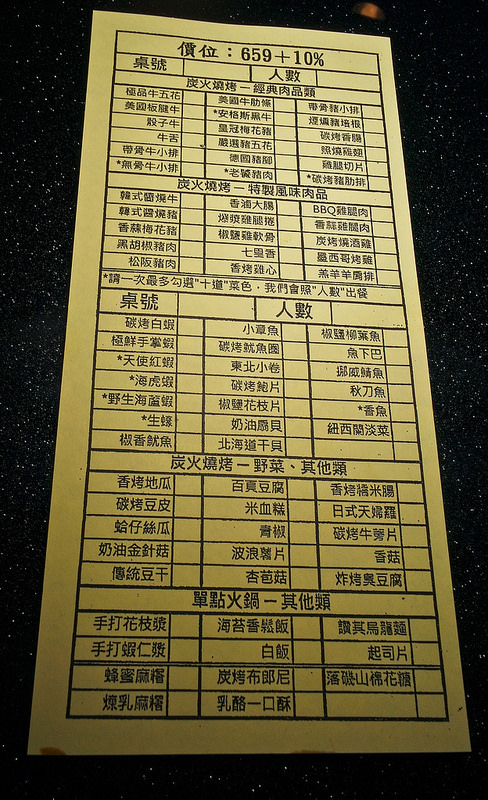 價位：659＋10%
桌號 人數
炭火燒烤－經典肉品類
極品牛五花 美國牛肋條 帶骨豬小排
美國板腱牛 *安格斯黑牛 煙燻豬培根
骰子牛 皇冠梅花豬 碳烤香腸
牛舌 嚴選豬五花 照燒雞翅
帶骨牛小排 德國豬腳 雞腿切片
*無骨牛小排 *老饕豬肉 *碳烤豬肋排
炭火燒烤－特製風味肉品
韓式醬燒牛 香滷大腸 BBQ雞腿肉
韓式醬燒豬 爆漿雞腿捲 香蒜雞腿肉
香蒜梅花豬 椒鹽雞軟骨 炭烤燒酒雞
黑胡椒豬肉 七里香 墨西哥烤雞
松阪豬肉 香烤雞心 羔羊羊肩排
*請一次最多勾選"十道"菜色，我們會照"人數"出餐
桌號 人數
碳烤白蝦 小章魚 椒鹽柳葉魚
極鮮手掌蝦 碳烤魷魚圈 魚下巴
*天使紅蝦 東北小卷 挪威鯖魚
*海虎蝦 碳烤鮑片 秋刀魚
*野生海蘆蝦 椒鹽花枝片 *香魚
*生蠔 奶油扇貝 紐西蘭淡菜
椒香魷魚 北海道干貝
炭火燒烤－野菜、其他類
香烤地瓜 百頁豆腐 香烤糯米腸
碳烤豆皮 米血糕 日式天婦羅
蛤仔絲瓜 青椒 碳烤牛蒡片
奶油金針菇 波浪薯片 香菇
傳統豆干 杏苞菇 炸烤臭豆腐
單點火鍋－其他類
手打花枝漿 海苔香鬆飯 讚其烏龍麵
手打蝦仁漿 白飯 起司片
蜂蜜麻糬 炭烤布郎尼 落磯山棉花糖
煉乳麻糬 乳酪一口酥